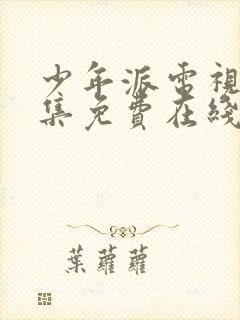 少年派電視
集免費在綫
葉蘿蘿